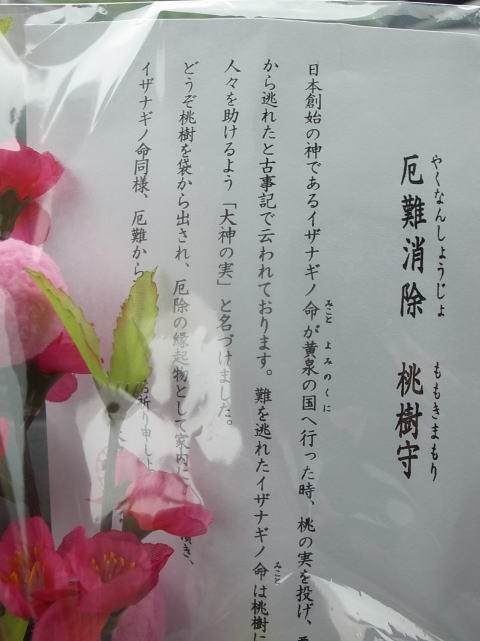 やくなんしょうじょ ももきまもり
厄難消除 桃樹守
みこと よみのくに
日本創始の神であるイザナギノ命が黄泉の国へ行った時、桃の実を投げ、
みこと
から逃れたと古事記で云われております。難を逃れたイザナギノ命は桃樹に
人々を助けるよう「大神の実」と名づけました。
どうぞ桃樹を袋から出され、厄除の縁起物として家内に
イザナギノ命同様、厄難から